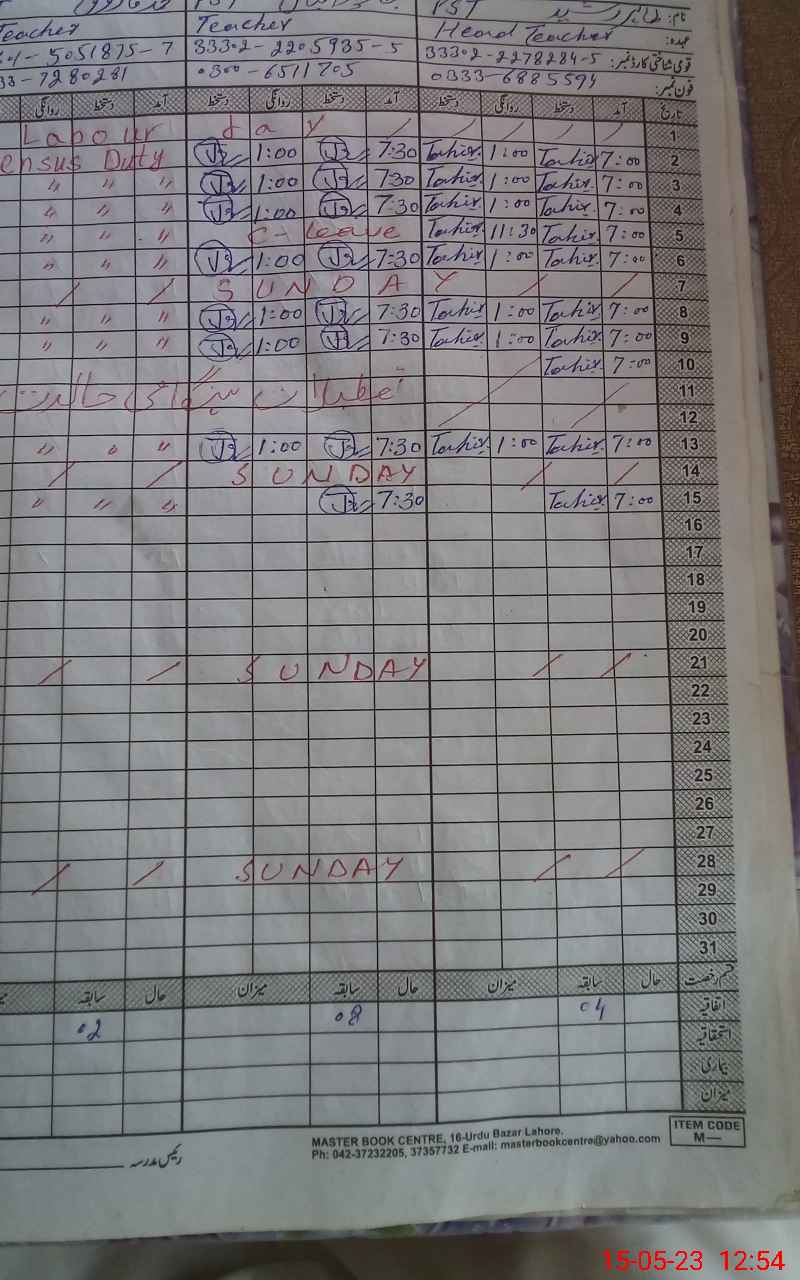 نام: طاہر رشید PST PST
عہدہ: Head Teacher Teacher Teacher
قومی شناختی کارڈ نمبر: 33302-2278284-5 33302-2205935-5 5051875-7
فون نمبر: 0333-6885594 0300-6511705 33-7280281
تاریخ آمد دستخط روانگی دستخط آمد دستخط روانگی دستخط آمد دستخط روانگی
1 Labour day
2 7:00 Tahir 1:00 Tahir 7:30 1:00 ensus Duty
3 7:00 Tahir 1:00 Tahir 730 1:00 " " "
4 7:00 Tahir 1:00 Tahir 7:30 1:00 " " "
5 7:00 Tahir 11:30 Tahir C-Leave " " "
6 7:00 Tahir 1:00 Tahir 7:30 1:00 " " "
7 SUNDAY
8 7:00 Tahir 1:00 Tahir 7:30 1:00 " " "
9 7:00 Tahir 1:00 Tahir 7:30 1:00 " " "
10 7:00 Tahir
11 تعطیلات ہنگامی حالت
12
13 7:00 Tahir 1:00 Tahir 7:30 1:00 " " "
14 SUNDAY
15 7:00 Tahir 7:30 " " "
16
17
18
19
20
21 SUNDAY
22
23
24
25
26
27
28 SUNDAY
29
30
31
قسم رخصت حال سابقہ میزان حال سابقہ میزان حال سابقہ
اتفاقیہ 04 08 02
استحقاقیہ
بیماری
میزان
رئیس مدرسہ
MASTER BOOK CENTRE, 16-Urdu Bazar Lahore.
Ph: 042-37232205, 37357732 E-mail: masterbookcentre@yahoo.com
ITEM CODE
M—
15-05-23 12:54